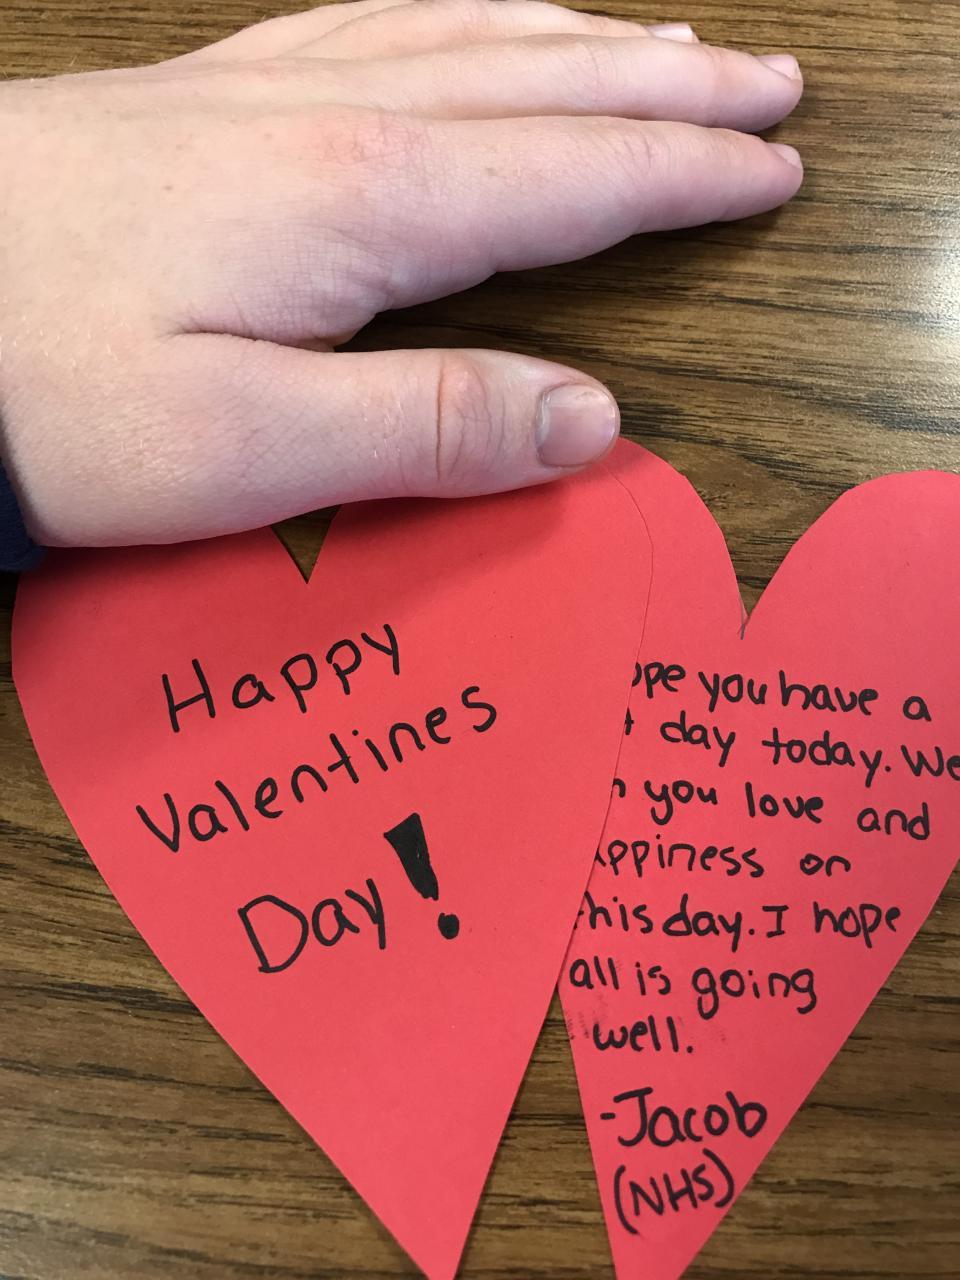 Happy
Valentines
Day!
ope you have a
day today. We
you love and
appiness on
this day. I hope
all is going
well.
-Jacob
(NHS)